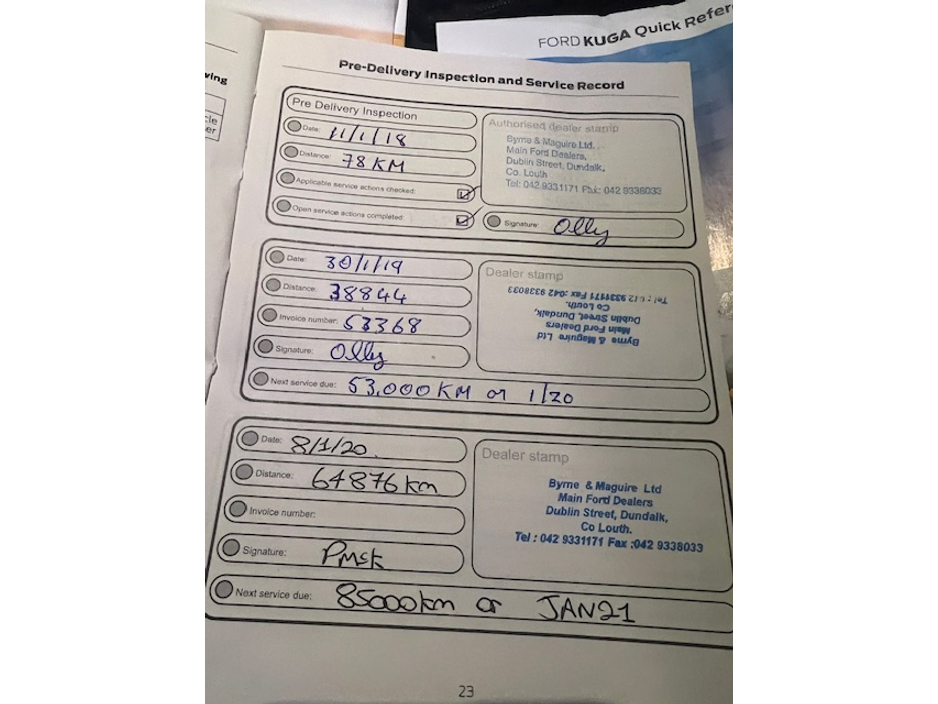 FORD KUGA Quick Refer
ving
cle
er
Pre-Delivery Inspection and Service Record
Pre Delivery Inspection
Date: 11/1/18
Distance: 78 KM
Applicable service actions checked:
Open service actions completed:
Authorised dealer stamp
Byrne & Maguire Ltd.
Main Ford Dealers,
Dublin Street, Dundalk,
Co. Louth
Tel: 042 9331171 Fax: 042 9338033
Signature: Olly
Date: 30/1/19
Distance: 38844
Invoice number: 53368
Signature: Olly
Next service due: 53,000 KM or 1/20
Dealer stamp
Byrne & Maguire Ltd
Main Ford Dealers
Dublin Street, Dundalk,
Co Louth.
Tel : 042 9331171 Fax :042 9338033
Date: 8/1/20.
Distance: 64876 km
Invoice number:
Signature:
Next service due: 85000km or JAN21
Dealer stamp
Byrne & Maguire Ltd
Main Ford Dealers
Dublin Street, Dundalk,
Co Louth.
Tel : 042 9331171 Fax :042 9338033
23